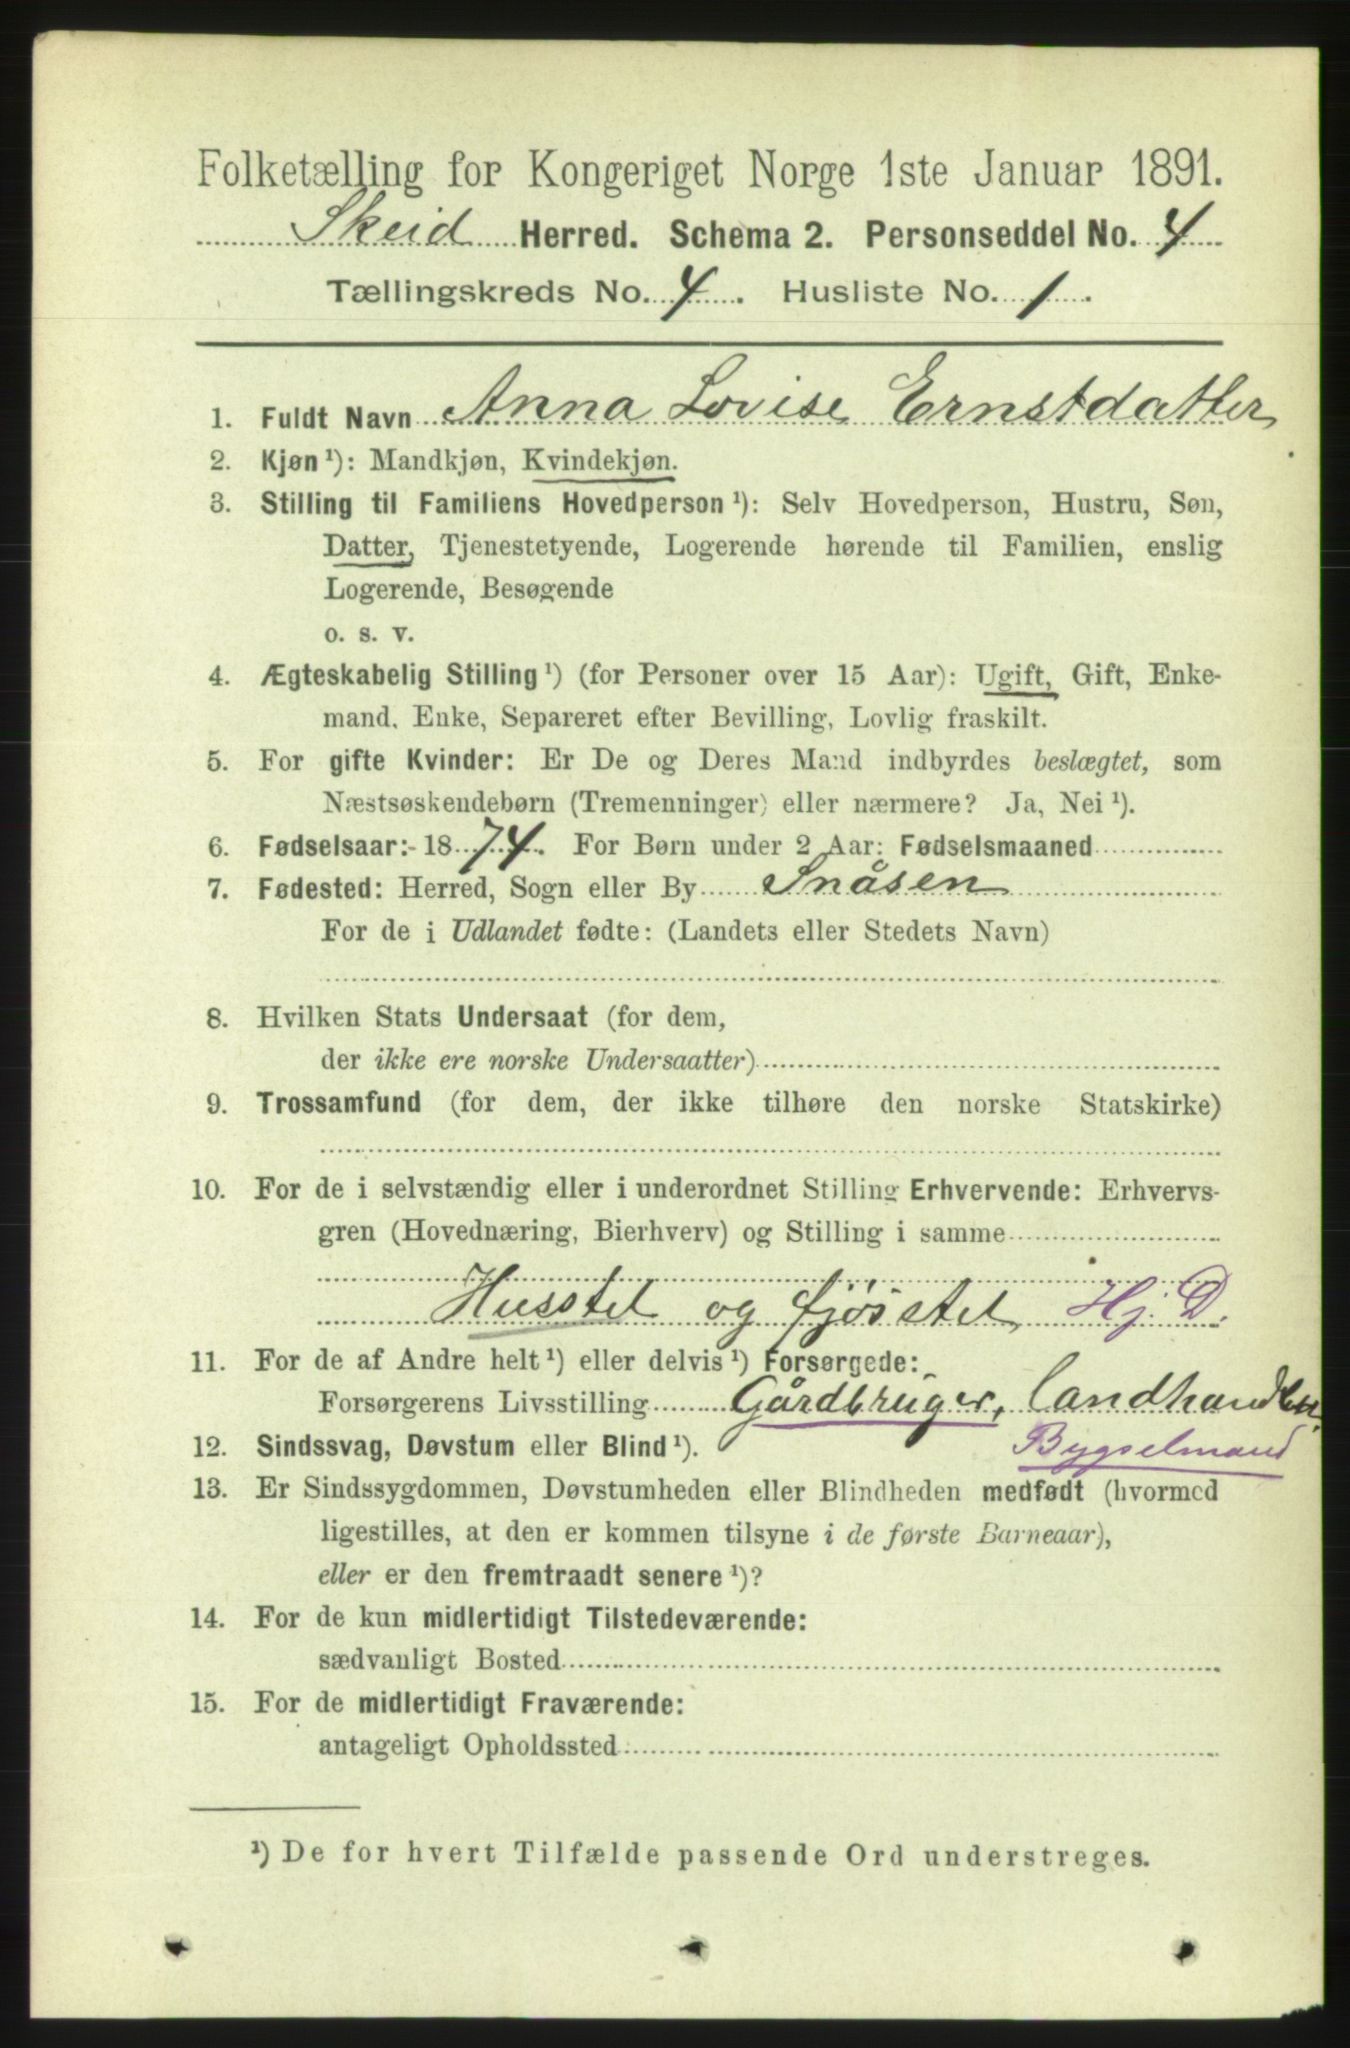 Folketælling for Kongeriget Norge 1ste Januar 1891.
Skeid Herred. Schema 2. Personseddel No. 4
Tællingskreds No. 4. Husliste No. 1.
1. Fuldt Navn Anna Lovise Ernstdatter
2. Kjøn ¹): Mandkjøn, Kvindekjøn.
3. Stilling til Familiens Hovedperson ¹): Selv Hovedperson, Hustru, Søn,
Datter, Tjenestetyende, Logerende hørende til Familien, enslig
Logerende, Besøgende
o. s. v.
4. Ægteskabelig Stilling ¹) (for Personer over 15 Aar): Ugift, Gift, Enke-
mand, Enke, Separeret efter Bevilling, Lovlig fraskilt.
5. For gifte Kvinder: Er De og Deres Mand indbyrdes beslægtet, som
Næstsøskendebørn (Tremenninger) eller nærmere? Ja, Nei ¹).
6. Fødselsaar: 1874. For Børn under 2 Aar: Fødselsmaaned
7. Fødested: Herred, Sogn eller By Snåsen
For de i Udlandet fødte: (Landets eller Stedets Navn)
8. Hvilken Stats Undersaat (for dem,
der ikke ere norske Undersaatter)
9. Trossamfund (for dem, der ikke tilhøre den norske Statskirke)
10. For de i selvstændig eller i underordnet Stilling Erhvervende: Erhvervs-
gren (Hovednæring, Bierhverv) og Stilling i samme
Husstel og fjøsstel Hj. D.
11. For de af Andre helt ¹) eller delvis ¹) Forsørgede:
Forsørgerens Livsstilling Gårdbruger, landhandler
12. Sindssvag, Døvstum eller Blind ¹). Bygselmand
13. Er Sindssygdommen, Døvstumheden eller Blindheden medfødt (hvormed
ligestilles, at den er kommen tilsyne i de første Barneaar),
eller er den fremtraadt senere ¹)?
14. For de kun midlertidigt Tilstedeværende:
sædvanligt Bosted
15. For de midlertidigt Fraværende:
antageligt Opholdssted
¹) De for hvert Tilfælde passende Ord understreges.